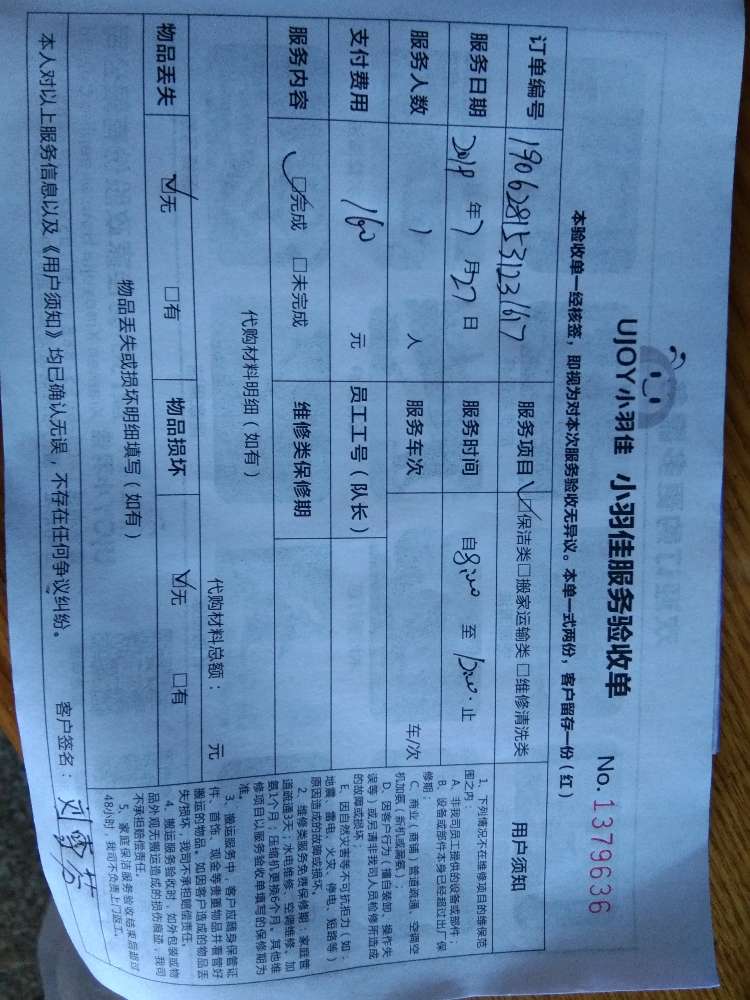 UJOY小羽佳 小羽佳服务验收单 No. 1379636
本验收单一经核签，即视为对本次服务验收无异议。本单一式两份，客户留存一份（红）
订单编号 190628153123167 服务项目 ☑保洁类□搬家运输类 □维修清洗类
服务日期 2019 年 7 月 27 日 服务时间 自 至 止
服务人数 1 人 服务车次 车/次
支付费用 160 元 员工工号（队长）
服务内容 ☑完成 □未完成 维修类保修期
代购材料明细（如有）
代购材料总额： 元
物品丢失 ☑无 □有 物品损坏 ☑无 □有
物品丢失或损坏明细填写（如有）
本人对以上服务信息以及《用户须知》均已确认无误，不存在任何争议纠纷。 客户签名：刘雪芬
用户须知
1、下列情况不在维修项目的维保范
围之内：
A、非我司员工提供的设备或部件；
B、设备或部件本身已经超过出厂保
修期；
C、商业（商铺）管道疏通、空调空
机加氟（新机或漏氟）；
D、因客户行为（擅自装卸、操作失
误等）或另请非我司人员检修所造成
的故障或损坏；
E、因自然灾害等不可抗拒力（如：
地震、雷电、火灾、停电、短路等）
原因造成的故障或损坏。
2、维修类服务免费保修期：家庭管
道疏通3天；水电维修、空调维修、加
氨1个月；压缩机更换6个月。其他维
修项目以服务验收单填写的保修期为
准。
3、搬运服务中，客户应随身保管证
件、首饰、现金等贵重物品并看管好
搬运的物品。如因客户造成的物品丢
失/损坏，我司不承担赔偿责任。
4、搬运服务验收时，如外包装或物
品外观无搬运造成的损伤痕迹，我司
不承担赔偿责任。
5、家庭保洁服务验收结束后超过
48小时，我司不负责上门返工。